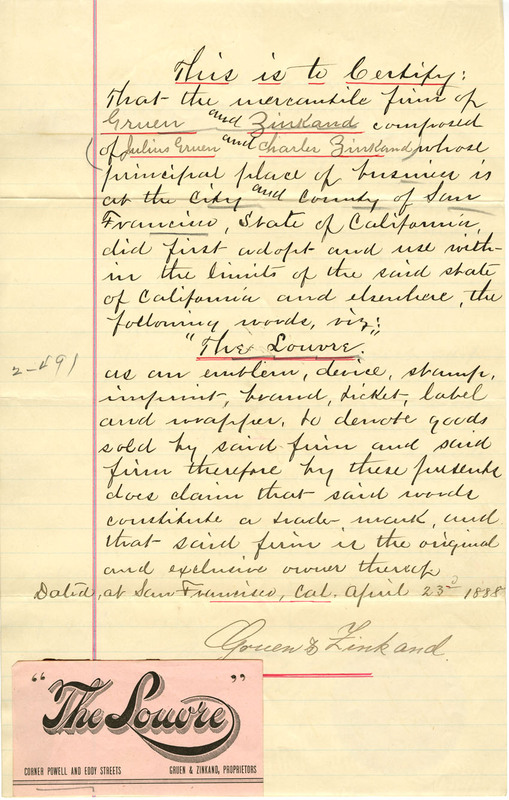 This is to Certify:
That the mercantile firm of
Gruen and Zinkand composed
(of Julius Gruen and Charles Zinkand) whose
principal place of business is
at the City and County of San
Francisco, State of California,
did first adopt and use with-
in the limits of the said state
of California and elsewhere, the
following words, viz:
"The Louvre".
2-491
as an emblem, device, stamp,
imprint, brand, ticket, label
and wrapper, to denote goods
sold by said firm and said
firm therefore by these presents
does claim that said words
constitute a trade-mark, and
that said firm is the original
and exclusive owner thereof
Dated, at San Francisco, Cal. April 23d 1888
Gruen & Zinkand.
"The Louvre"
CORNER POWELL AND EDDY STREETS GRUEN & ZINKAND, PROPRIETORS